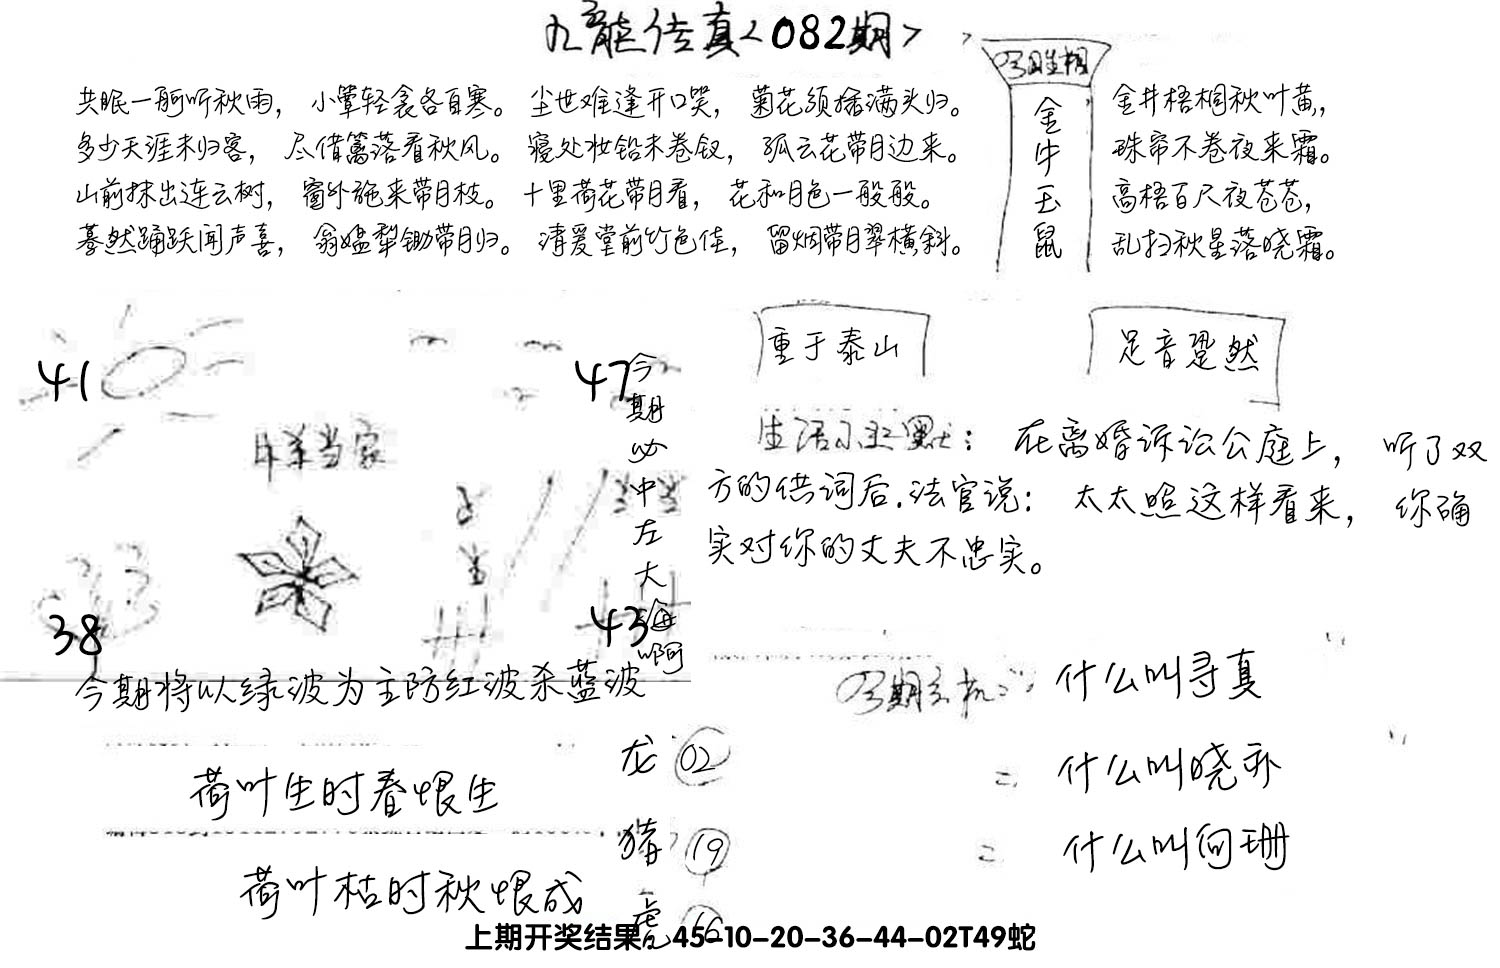 九龙传真<082期>
共眠一舸听秋雨，小簟轻衾各自寒。尘世难逢开口笑，菊花须插满头归。
多少天涯未归客，尽借篱落看秋风。寝处妆铅未卷钗，孤云花带月边来。
山前抹出连云树，窗外施来带月枝。十里荷花带月看，花和月色一般般。
蓦然踊跃闻声喜，翁媪犁锄带月归。清爱堂前竹色佳，留烟带月翠横斜。
今期生相
金牛玉鼠
金井梧桐秋叶黄，
珠帘不卷夜来霜。
高梧百尺夜苍苍，
乱扫秋星落晓霜。
重于泰山
足音跫然
41
47
今期必中左大海啊
当家
38
43
生活小幽默：在离婚诉讼公庭上，听了双
方的供词后.法官说：太太照这样看来，你确
实对你的丈夫不忠实。
今期将以绿波为主防红波杀蓝波
今期玄机：什么叫寻真
=什么叫晓乔
=什么叫向珊
荷叶生时春恨生
荷叶枯时秋恨成
龙 02
猪 19
虎 16
上期开奖结果：45-10-20-36-44-02T49蛇